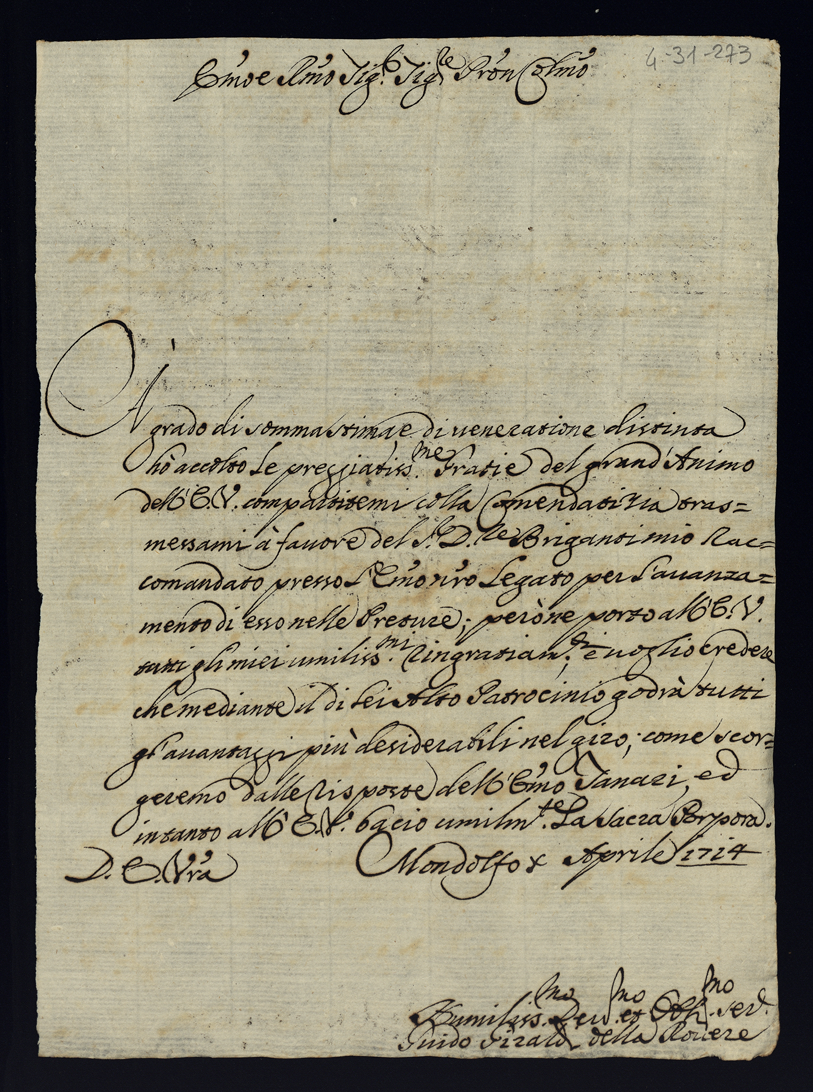 4-31-273
Emo e Rmo Sig.r Sig.re Pron Colmo
A grado di somma stima e di veneratione distinta
hò accolto le preggiatiss.me Gratie del grand'Animo
dell'E.V. compartitemi colla Comendatizia tras=
messami à favore del S.r D.re Briganti mio Rac=
comandato presso l'Emo nro Legato per l'avanza=
mento di esso nelle Preture; però ne porto all'E.V.
tutti gli miei umiliss.mi ringratiam.ti, e voglio credere
che mediante il di lei Alto Patrocinio godrà tutti
gl'avantaggi più desiderabili nel giro; come scor=
geremo dalle risposte dell'Emo Tanari, ed
intanto all'E.V. bacio umilm.te La Sacra Porpora.
D. E. Vra Mondolfo x Aprile 1714
Humiliss.mo Dev.mo et Obli.mo Ser.
Guido Girald della Rovere